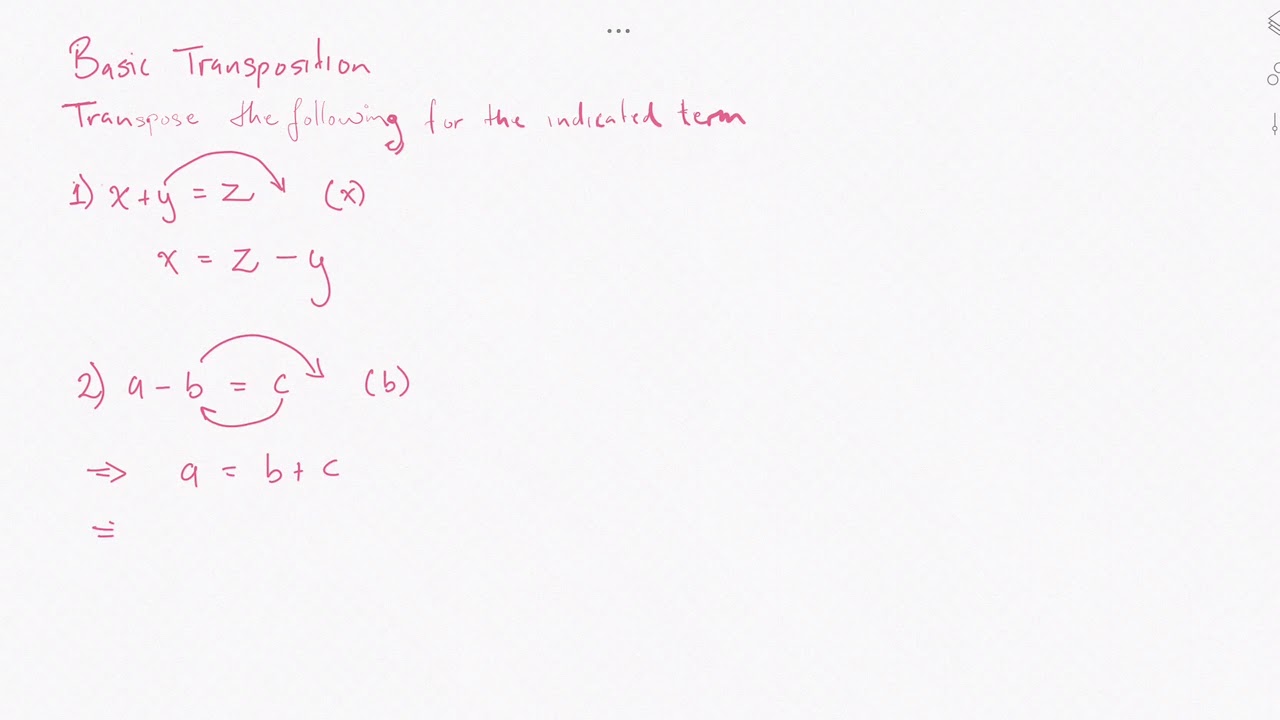 Basic Transposition
Transpose the following for the indicated term
1) x + y = z (x)
x = z - y
2) a - b = c (b)
⇒ a = b + c
=